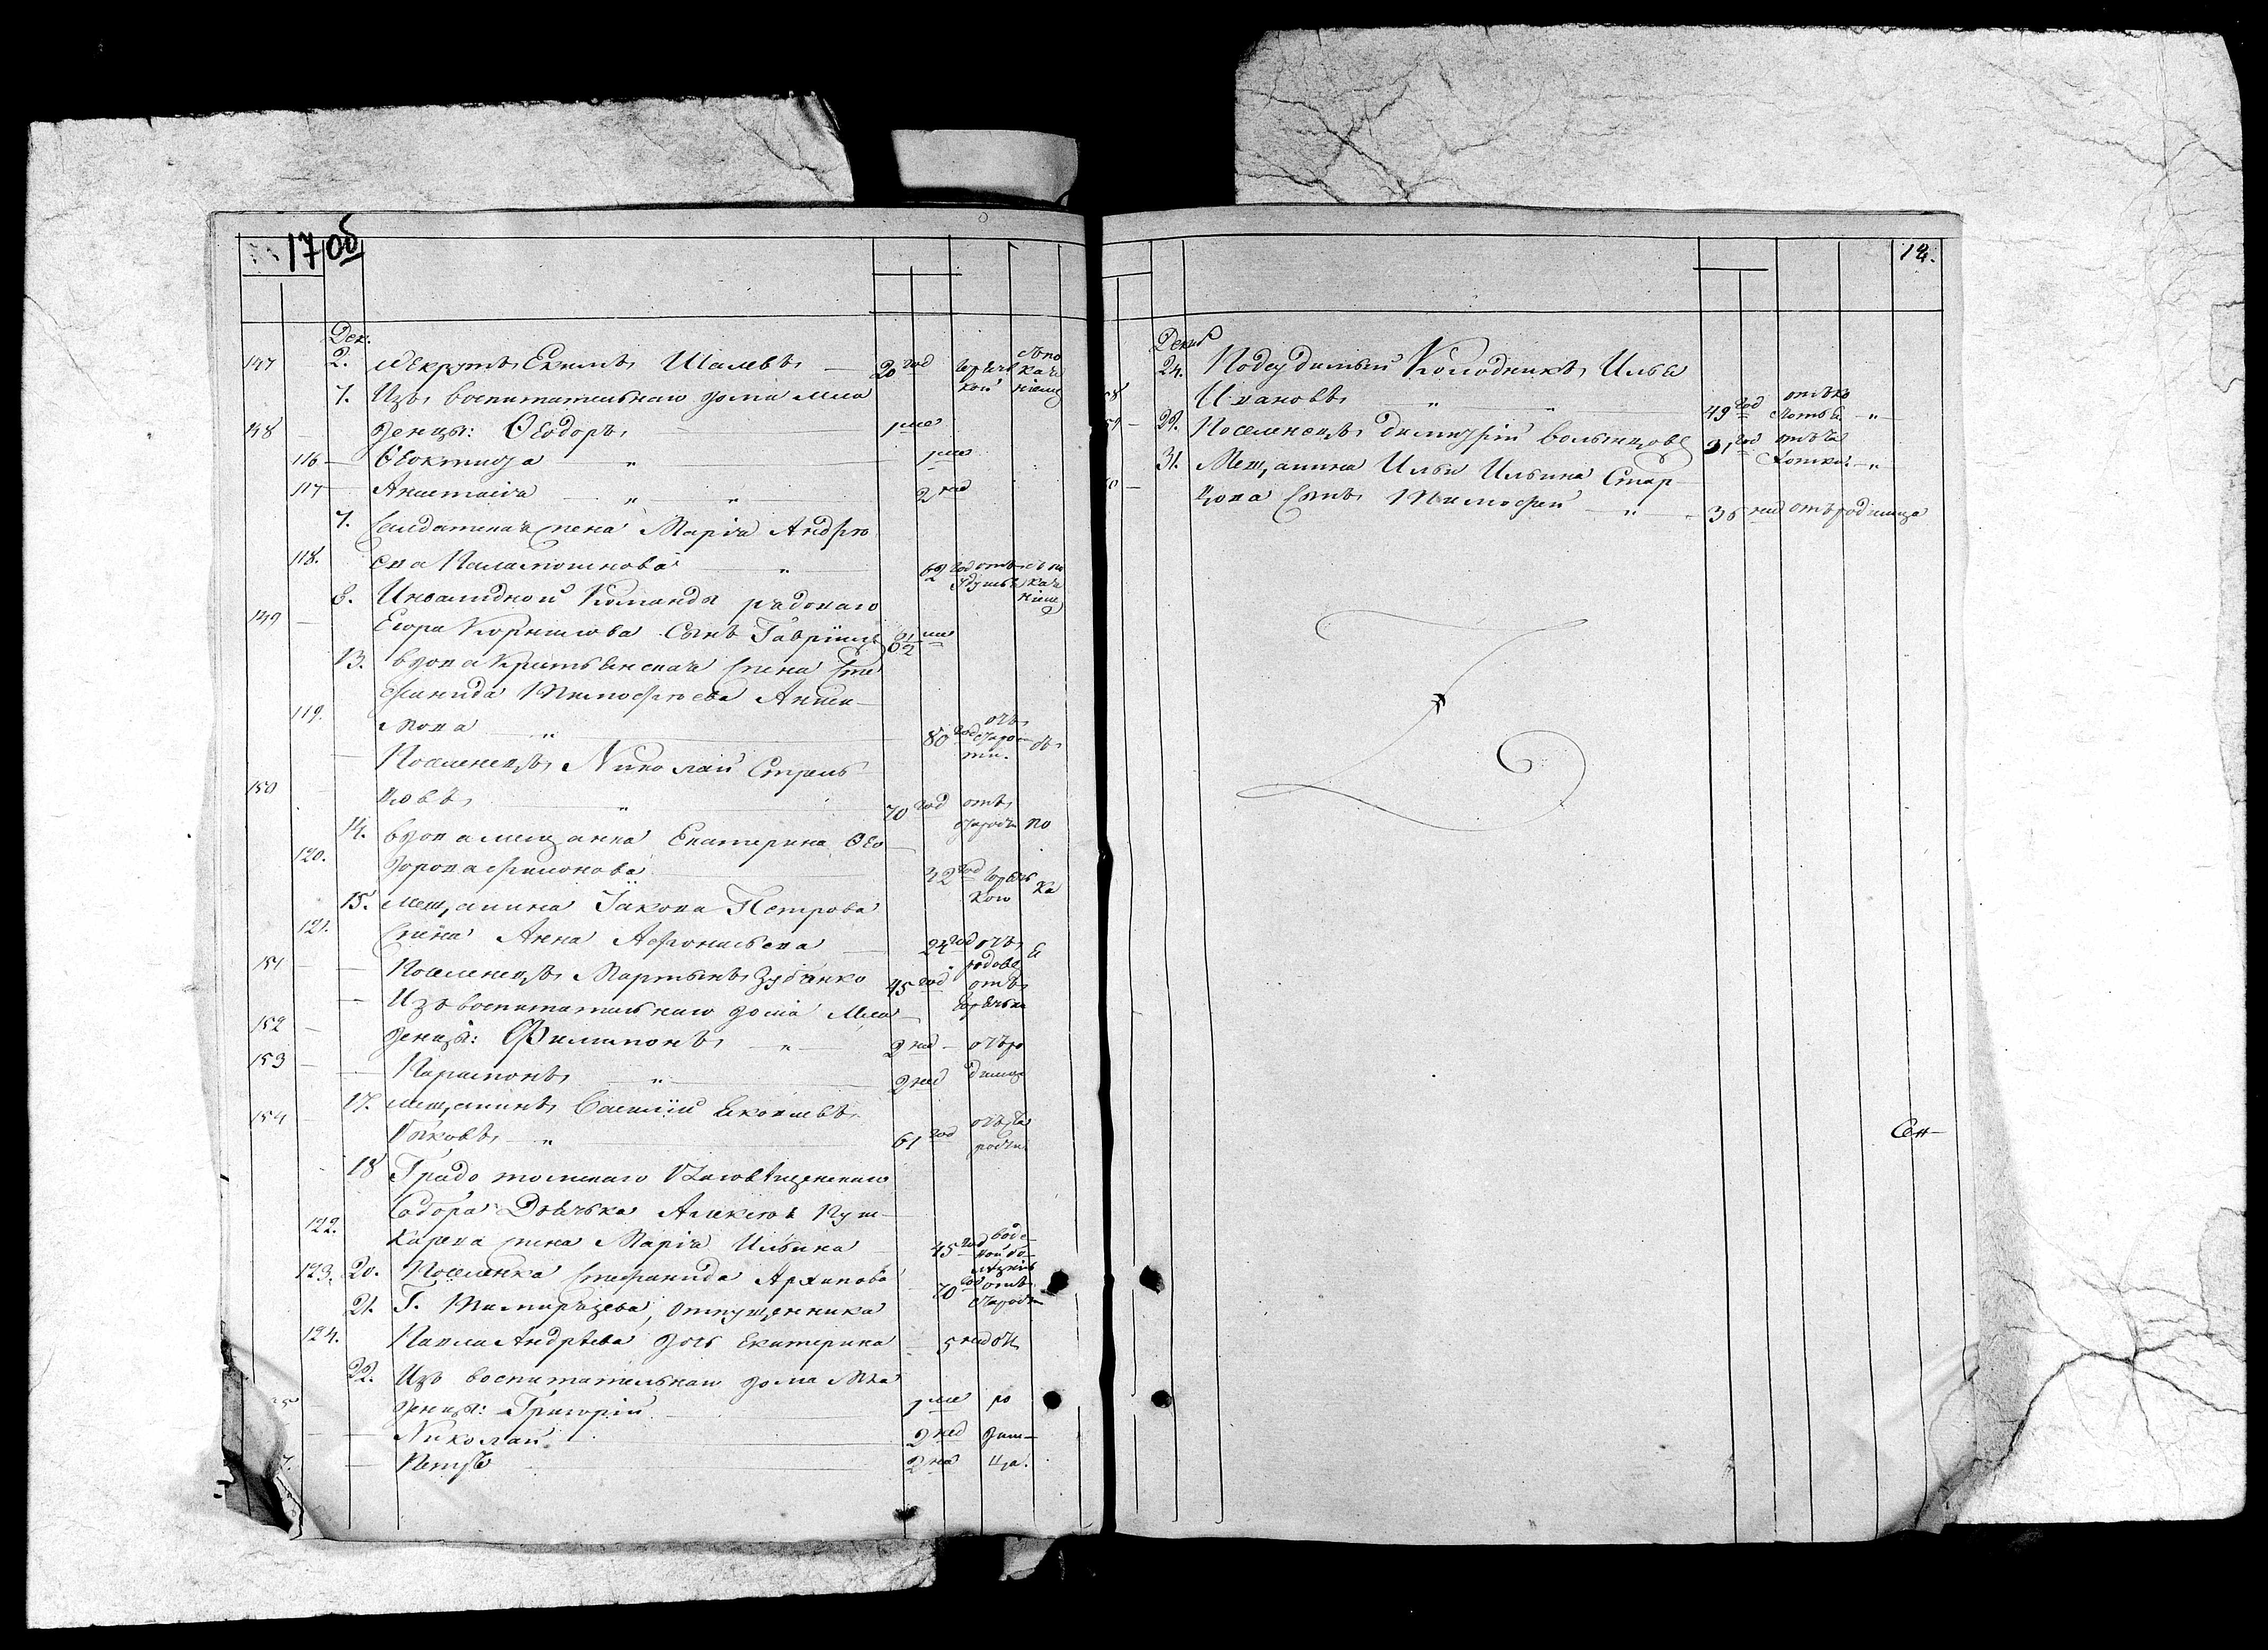 17 об
Дек.
147 2. Рекрутъ Екимъ Шалевъ 20 год горяч съ по
кой кая
ніемъ
7. Изъ воспитательнаго дома мла
148 денцы: Ѳеодоръ 1 ме
116 Ѳеоктиста " 1 ме
117 Анастасія " " 2 нед
7. Салдатская жена Марія Андрѣ
118. ева Паламошнова " 62 год отъ съ по
удушья кая
ніемъ
8. Инвалидной Команды рядоваго
149 Егора Корнилова сынъ Гавріилъ 6 1/2 ме
13. вдова Крестьянская жена Сте
фанида Тимофѣева Аники
119. нова " 80 год отъ
старос
ти. съ
Поселенецъ Николай Стрель
150 цовъ " 70 год отъ
старости по
14. вдова мещанка Екатерина Ѳео
120. дорова Филонова 42 год горяч
кою ка
15. мещанина Іакова Петрова
121. жена Анна Афонасьева 24 год отъ я
родовъ
151 Поселенецъ Мартынъ Зубенко 45 год отъ
горячки
Изъ воспитательнаго дома Мла
152 денцы: Филимонъ " 2 нед отъ ро
153 Парамонъ " 2 нед димца
17. мещанинъ Василій Яковлевъ
154 Быковъ " 61 год отъ ста
рости
18 Градо томскаго Благовѣщенскаго
Собора Дьячка Алексѣя Пуш
122. карева жена Марія Ильина 45 год водя
ной бо
лѣзни
123. 20. Поселенка Стефанида Архипова 70 год отъ
старости
21. Г. Тимирязева, отпущенника
124. Павла Андрѣева дочь Екатерина 5 нед отъ
22. Изъ воспитательнаго дома Мла
денцы: Григорій 1 ме ро
Николай 2 нед дим
7. Петръ 2 не ца.
12.
Декаб
24. Подсудимый Колодникъ Илья
8 Ивановъ " " 49 год отъ ко
лотья "
59 28. Поселенецъ Димитрій Волынцовъ 31 год отъ ча
хотки "
31. Мещанина Ильи Ильина Стар
0 цова сынъ Тимофей " 36 нед отъ родимца
Сен